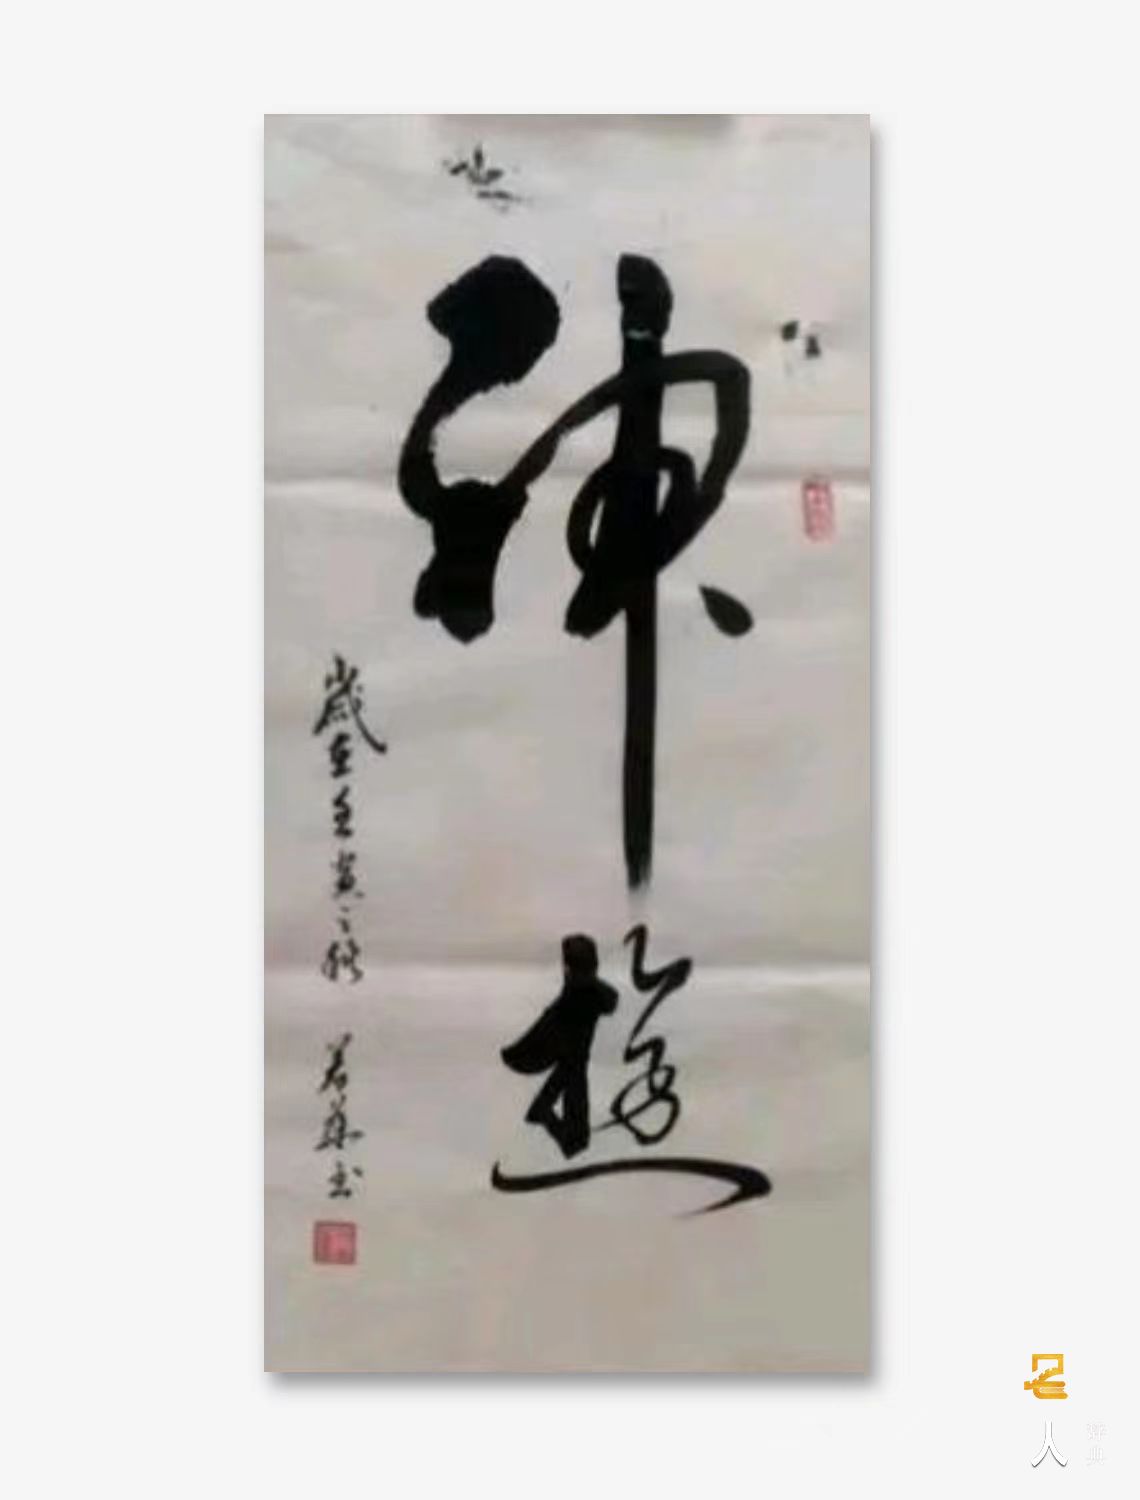 神遊
歲在壬寅之秋
若華書
名人
辞典